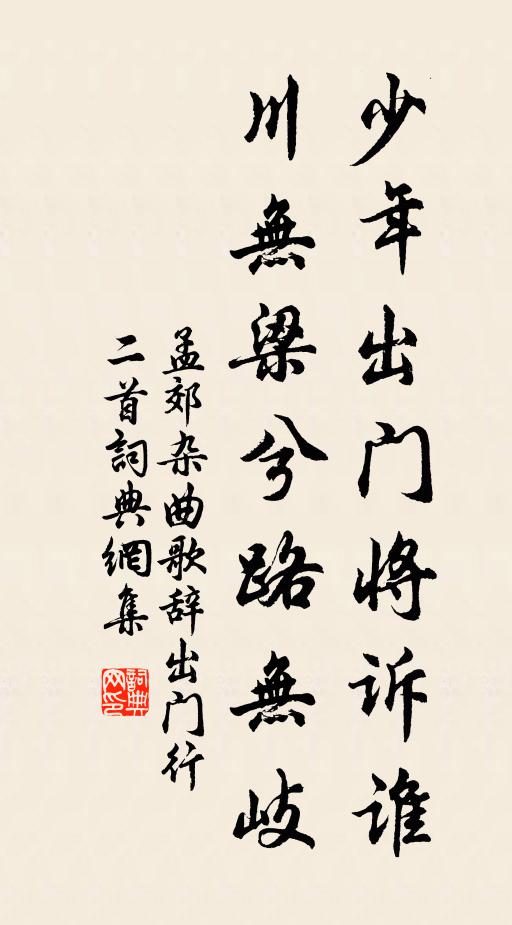 少年出门将诉谁
川無梁兮路無岐
孟郊杂曲歌辞出门行
二首詞典網集
詞典
网印